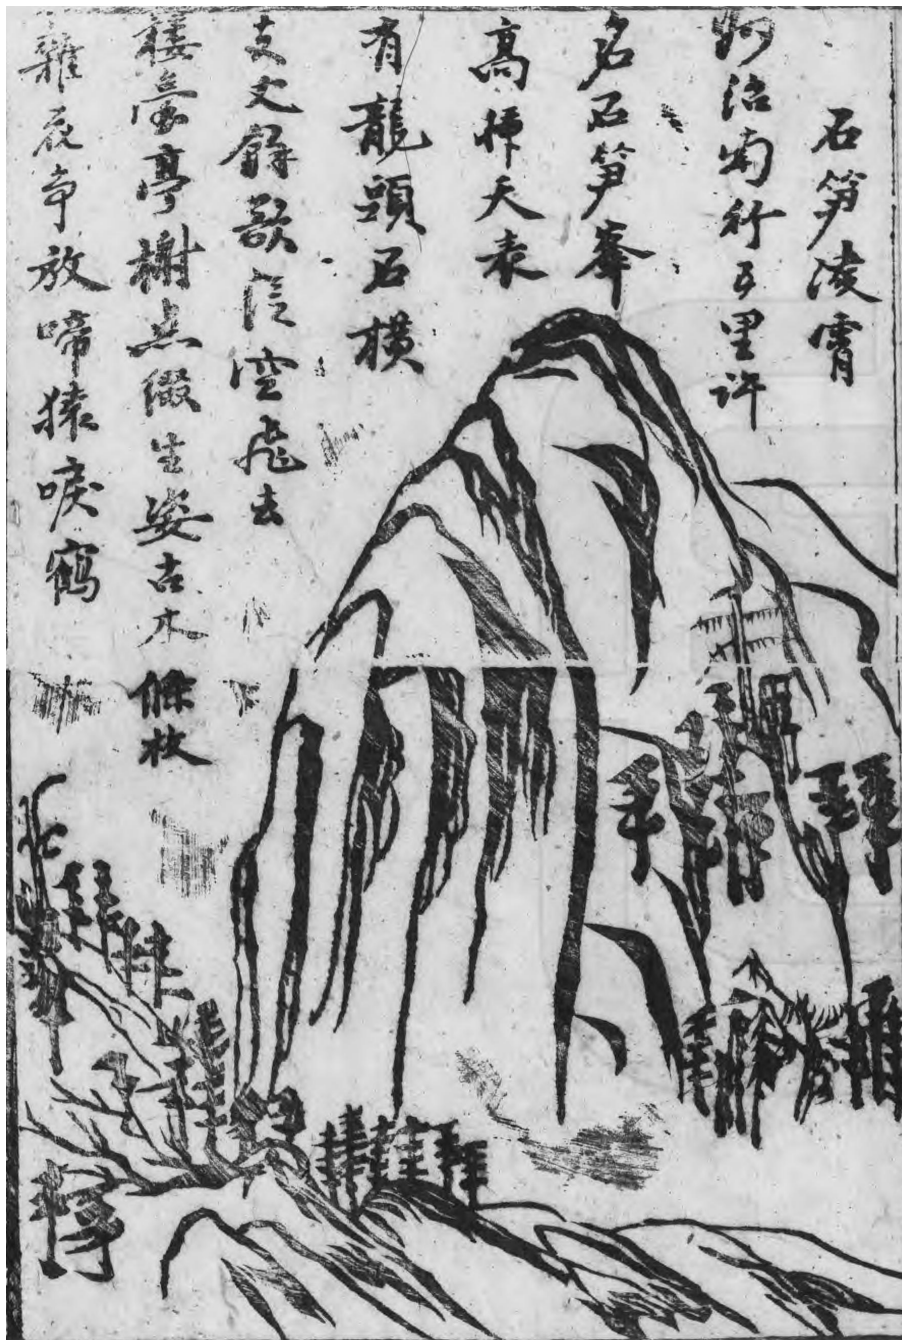 石笋淩霄
河沿南行五里許
名石笋峯
高揷天表
有龍頭石橫
支丈餘欲凭空飛去
樓臺亭榭点缀生姿古木條枚
雜夜争放啼猿唳鶴